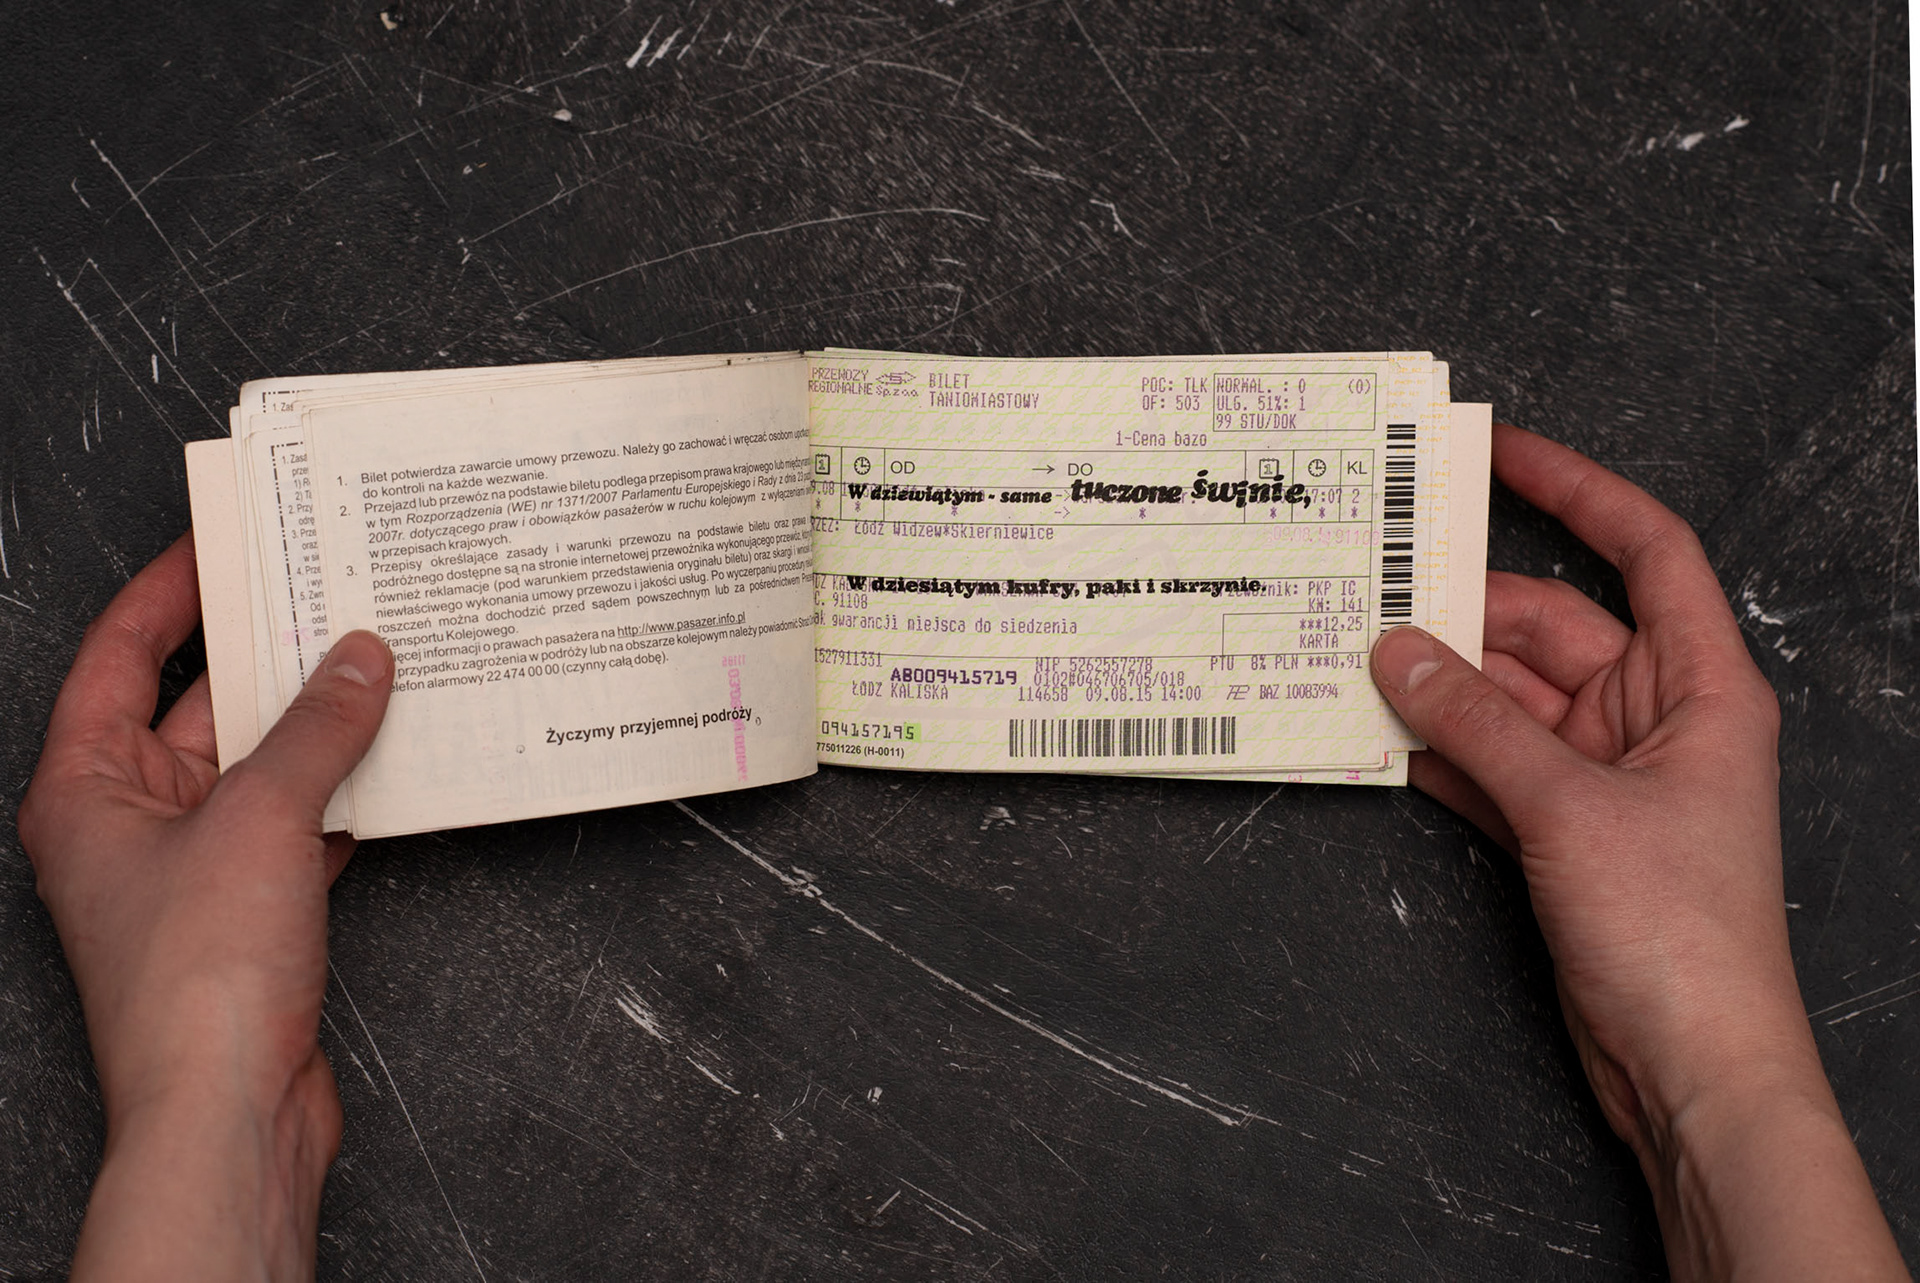 1. Bilet potwierdza zawarcie umowy przewozu. Należy go zachować i wręczać osobom
do kontroli na każde wezwanie.
2. Przejazd lub przewóz na podstawie biletu podlega przepisom prawa krajowego lub
w tym Rozporządzenia (WE) nr 1371/2007 Parlamentu Europejskiego i Rady z dnia 23
2007r. dotyczącego praw i obowiązków pasażerów w ruchu kolejowym z wyłączeniami
w przepisach krajowych.
3. Przepisy określające zasady i warunki przewozu na podstawie biletu oraz prawa
podróżnego dostępne są na stronie internetowej przewoźnika wykonującego przewóz,
również reklamacje (pod warunkiem przedstawienia oryginału biletu) oraz skargi i
niewłaściwego wykonania umowy przewozu i jakości usług. Po wyczerpaniu procedury
roszczeń można dochodzić przed sądem powszechnym lub za pośrednictwem
Transportu Kolejowego.
ięcej informacji o prawach pasażera na http://www.pasazer.info.pl
przypadku zagrożenia w podróży lub na obszarze kolejowym należy powiadomić
elefon alarmowy 22 474 00 00 (czynny całą dobę).
Życzymy przyjemnej podróży
PRZEWOZY
REGIONALNE sp. z o.o.
BILET
TANIOMIASTOWY
POC: TLK
OF: 503
NORMAL. : 0 (0)
ULG. 51%: 1
99 STU/DOK
1-Cena bazo
OD → DO KL
W dziewiątym - same tuczone świnie,
17:07 2
RZEZ: Łódź Widzew*Skierniewice
W dziesiątym kufry, paki i skrzynie.
PKP IC
C. 91108
KM: 141
gwarancji miejsca do siedzenia
***12,25
KARTA
1527911331
NIP 5262557278
PTU 8% PLN ***0,91
AB009415719
0102#046706705/018
ŁÓDŹ KALISKA 114658 09.08.15 14:00 BAZ 10083994
094157195
775011226 (H-0011)